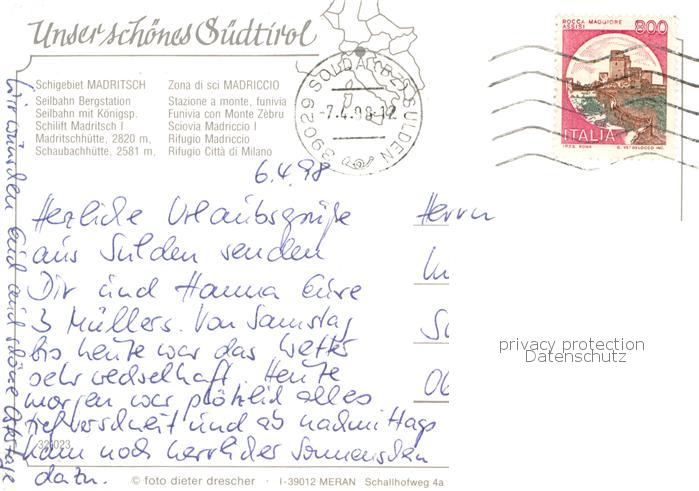 Unser schönes Südtirol
Schigebiet MADRITSCH
Seilbahn Bergstation
Seilbahn mit Königsp.
Schilift Madritsch I
Madritschhütte, 2820 m,
Schaubachhütte, 2581 m.
Zona di sci MADRICCIO
Stazione a monte, funivia
Funivia con Monte Zèbru
Sciovia Madriccio I
Rifugio Madriccio
Rifugio Città di Milano
39029 SOLDA-BZ-SULDEN
-7.4.98-12
ROCCA MAGGIORE
ASSISI
800
ITALIA
6.4.98
Herzliche Urlaubsgrüße
aus Sulden senden
Dir und Hanna Eure
3 Müllers. Von Samstag
bis heute war das Wetter
sehr wechselhaft. Heute
morgen war plötzlich alles
tief verschneit und ab nachmittags
kam noch herrlicher Sonnenschein
dazu.
Wir wünschen Euch auch schöne Ostertage
Herrn
privacy protection
Datenschutz
© foto dieter drescher · I-39012 MERAN Schallhofweg 4a